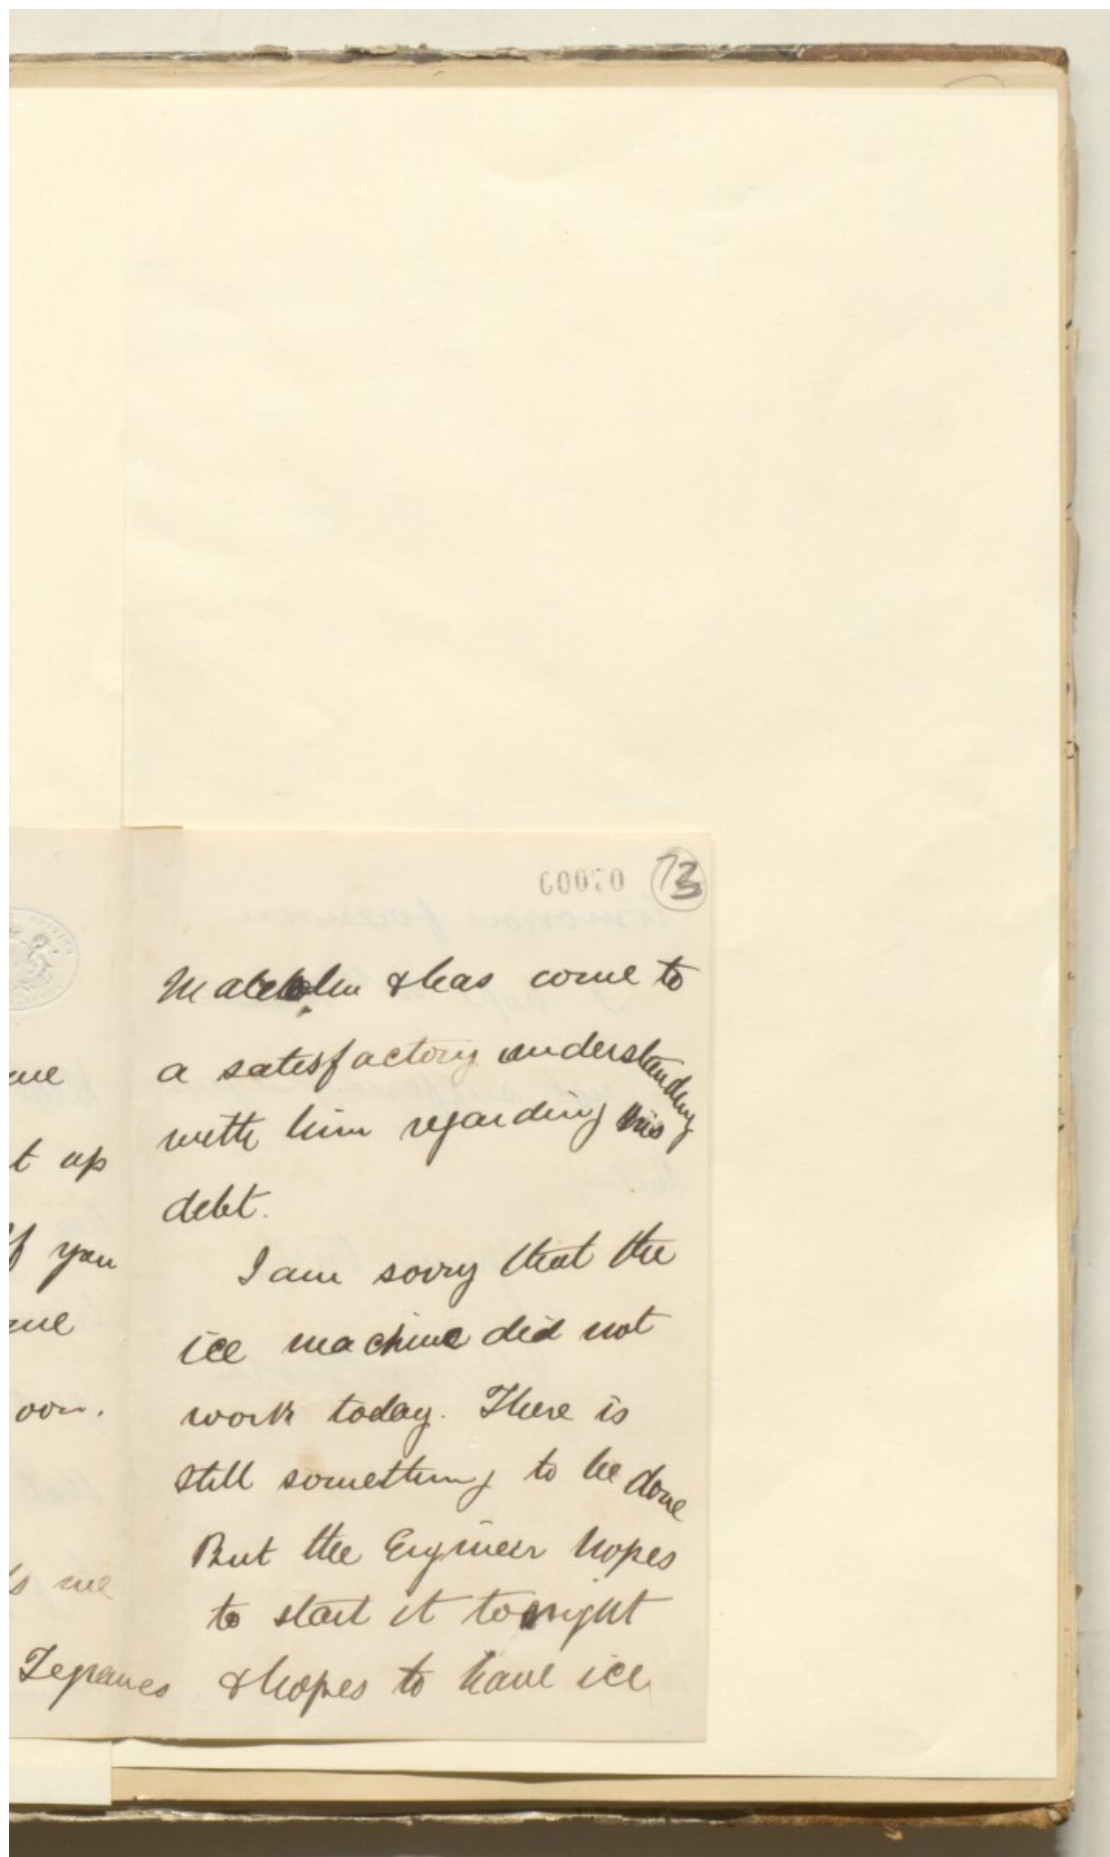 13
Malcolm & has come to
a satisfactory understanding
with him regarding this
debt.
I am sorry that the
ice machine did not
work today. There is
still something to be done
But the Engineer hopes
to start it tonight
& hopes to have ice
me
t up
If you
me
oon.
s me